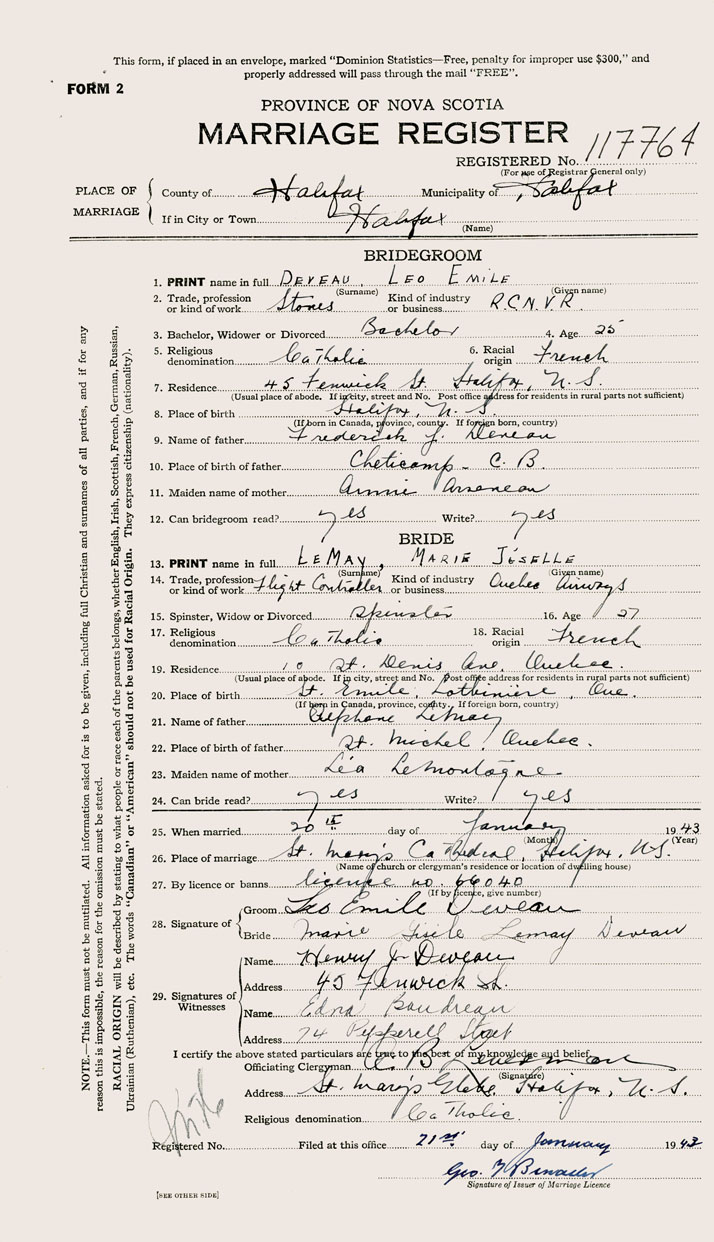 This form, if placed in an envelope, marked “Dominion Statistics—Free, penalty for improper use $300,” and
properly addressed will pass through the mail “FREE”.
FORM 2
PROVINCE OF NOVA SCOTIA
MARRIAGE REGISTER
REGISTERED No. 117764
(For use of Registrar General only)
PLACE OF MARRIAGE
County of Halifax Municipality of Halifax
If in City or Town Halifax
(Name)
BRIDEGROOM
1. PRINT name in full DEVEAU, LEO EMILE
(Surname) (Given name)
2. Trade, profession or kind of work Stores Kind of industry or business R.C.N.V.R.
3. Bachelor, Widower or Divorced Bachelor 4. Age 25
5. Religious denomination Catholic 6. Racial origin French
7. Residence 45 Fenwick St. Halifax, N.S.
(Usual place of abode. If in city, street and No. Post office address for residents in rural parts not sufficient)
8. Place of birth Halifax, N.S.
(If born in Canada, province, county. If foreign born, country)
9. Name of father Frederick J. Deveau
10. Place of birth of father Cheticamp - C.B.
11. Maiden name of mother Annie Arseneau
12. Can bridegroom read? yes Write? yes
BRIDE
13. PRINT name in full LEMAY, MARIE JÉSELLE
(Surname) (Given name)
14. Trade, profession or kind of work Flight Controller Kind of industry or business Quebec Airways
15. Spinster, Widow or Divorced Spinster 16. Age 27
17. Religious denomination Catholic 18. Racial origin French
19. Residence 10 St. Denis Ave. Quebec.
(Usual place of abode. If in city, street and No. Post office address for residents in rural parts not sufficient)
20. Place of birth St. Emile, Lotbiniere, Que.
(If born in Canada, province, county. If foreign born, country)
21. Name of father Stephane Lemay
22. Place of birth of father St. Michel, Quebec.
23. Maiden name of mother Léa Lemontagne
24. Can bride read? yes Write? yes
25. When married 20th day of January 1943
(Month) (Year)
26. Place of marriage St. Mary's Cathedral, Halifax, N.S.
(Name of church or clergyman's residence or location of dwelling house)
27. By licence or banns licence no. 66040
(If by licence, give number)
28. Signature of
Groom Leo Emile Deveau
Bride Marie Gisele Lemay Deveau
29. Signatures of Witnesses
Name Henry J. Deveau
Address 45 Fenwick St.
Name Edna Boudreau
Address 74 Pepperell Street
I certify the above stated particulars are true to the best of my knowledge and belief.
Officiating Clergyman
(Signature)
Address St. Mary's Glebe, Halifax, N.S.
Religious denomination Catholic.
Registered No. Filed at this office 21st day of January 1943
Geo.
Signature of Issuer of Marriage Licence
[SEE OTHER SIDE]
NOTE.—This form must not be mutilated. All information asked for is to be given, including full Christian and surnames of all parties, and if for any
reason this is impossible, the reason for the omission must be stated.
RACIAL ORIGIN will be described by stating to what people or race each of the parents belongs, whether English, Irish, Scottish, French, German, Russian,
Ukrainian (Ruthenian), etc. The words “Canadian” or “American” should not be used for Racial Origin. They express citizenship (nationality).